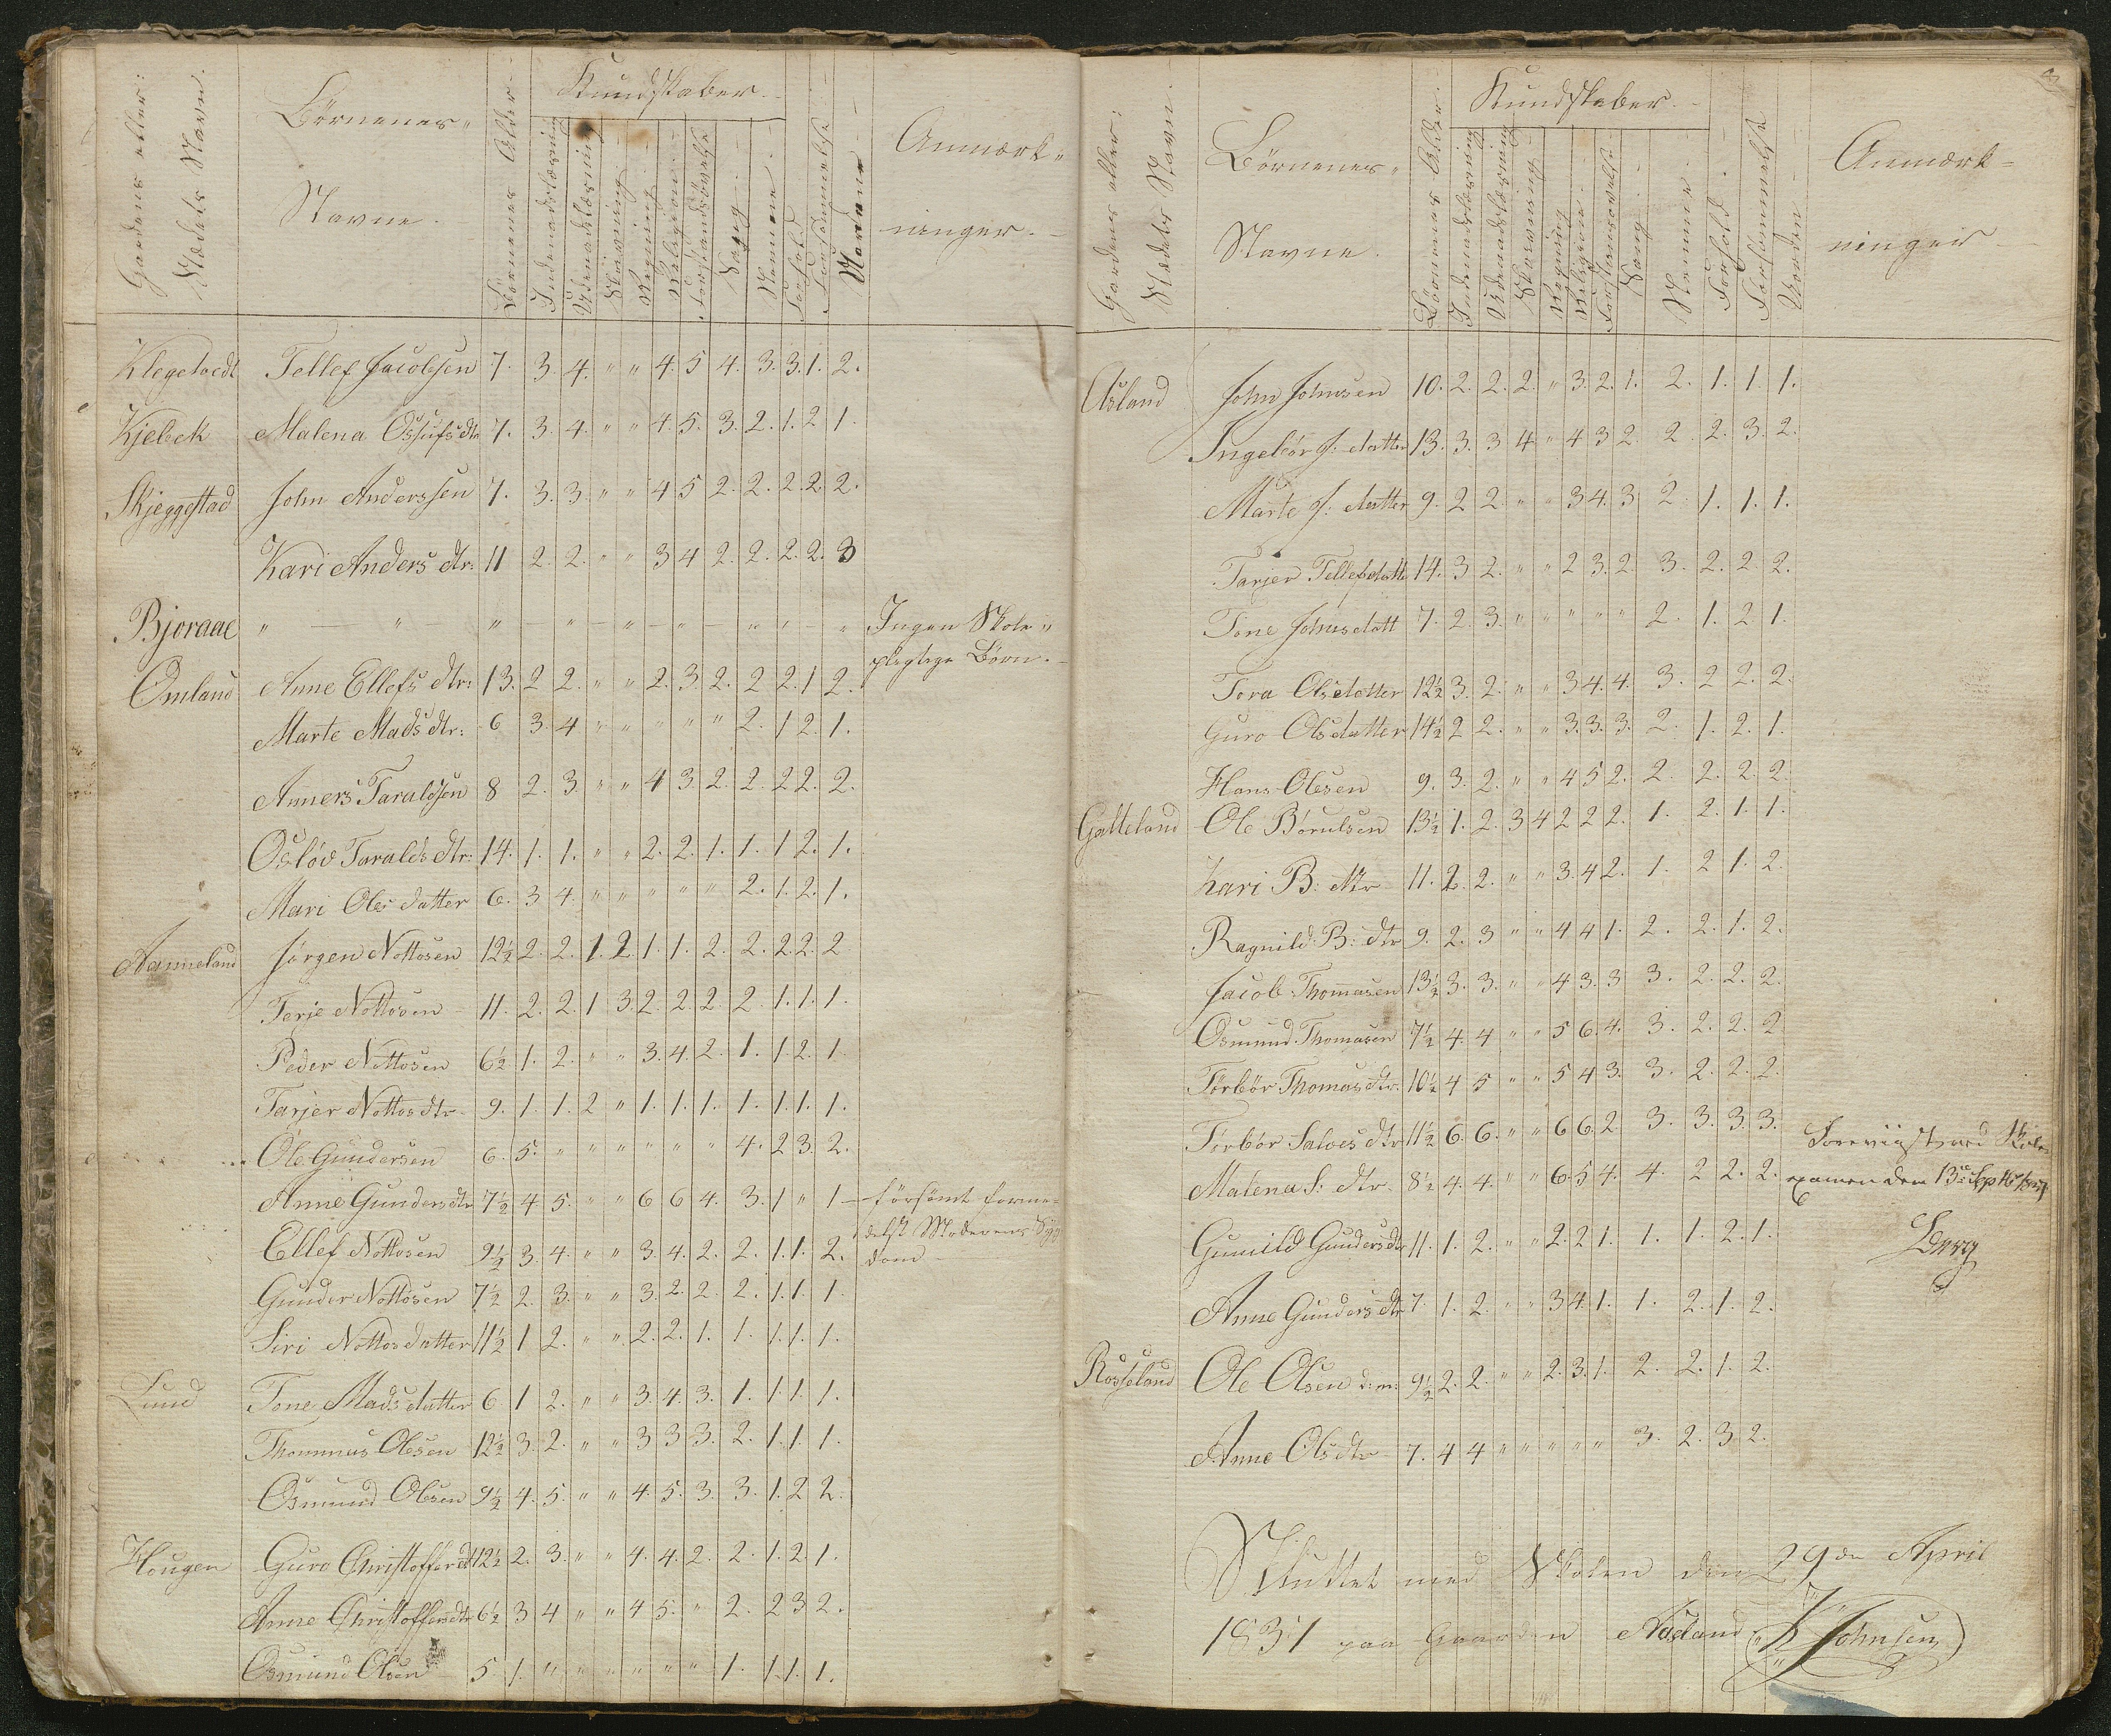 Gaardens eller:
Stædets Navn.
Börnenes
Navne.
Börnenes Alder
Kundskaber.
Indenadslæsning
Udenadslæsning
Skrivning
Regning
Religion
Forstandsövelse
Sang
Nemme
Forhold
Forsømmelse
Anmærk-
ninger.
Tellef Jacobsen 7. 3. 4. " " 4. 5 4. 3. 3. 1. 2.
Kjebek Malena Ossufsdtr 7. 3. 4. " " 4. 5. 3. 2. 1. 2 1.
Skjeggestad John Anderssen 7. 3. 3. " " 4 5 2. 2. 2. 2. 2.
Kari Anders dtr: 11 2. 2. " " 3 4 2. 2. 2. 2. 3
Bjoraae " " " " " " " " " Ingen Skole-
pligtige Börn.
Omland Anne Ellefs dtr: 13. 2 2. " " 2. 3. 2. 2 2. 1 2.
Marte Mads dtr: 6 3. 4 " " " " " 2. 1 2. 1.
Anners Taraldsen 8 2. 3. " " 4 3. 2. 2. 2 2. 2.
Osløv Taralds dtr: 14. 1. 1. " " 2. 2. 1. 1. 1 2. 1.
Mari Ols datter 6. 3 4. " " " " " 2. 1. 2. 1.
Aanneland Jørgen Nottosen 12½ 2. 2. 1. 2. 1. 1. 2. 2. 2. 2. 2
Terje Nottosen 11. 2. 2. 1 3. 2. 2. 2. 2. 1. 1. 1.
Peder Nottosen 6½ 1. 2. " " 3. 4. 2. 1. 1. 2. 1
Tarjer Nottos dtr. 9. 1. 1. 2 " 1. 1. 1. 1. 1. 1. 1.
Ole Gundersen 6. 5. " " " " " " 4. 2 3. 2.
Anne Gunders dtr 7½ 4 5. " " 6 6 4. 3. 1 " 1 – forsömt forme-
delst Moderens Syg
Ellef Nottosen 9½ 3. 4. " " 3. 4. 2. 2. 1. 1. 2. dom
Gunder Nottosen 7½ 2. 3. " " 3. 2. 2. 2. 1. 1. 1.
Siri Nottos datter 11½ 1 2. " " 2. 2. 1. 1. 1. 1. 1.
Lund Tone Mads datter 6 1 2. " " 3. 4. 3. 1. 1. 1. 1.
Thommas Olesen 12½ 3. 2. " " 3 3 3. 2. 1. 1. 1.
Osmund Olesen 9½ 4. 5. " " 4. 5. 3. 3. 1. 2 2.
Hougen Guro Christoffersdtr 12½ 2. 3. " " 4. 4. 2. 2. 1. 2 1.
Anne Christoffersdtr 6½ 3 4 " " 4 5. " 2. 2 3 2.
Osmund Olsen 5. 1. " " " " " " 1. 1. 1. 1.
Gaardens eller:
Stædets Navn.
Börnenes
Navne.
Börnenes Alder.
Kundskaber.
Indenadslæsning
Udenadslæsning
Skrivning
Regning
Religion
Forstansøvelse
Sang
Nemme
Forhold
Forsømmelse
Anmærk-
ninger
Aasland John Johnsen 10. 2. 2. 2. " 3. 2. 1. 2. 1. 1. 1.
Ingebör J: datter 13. 3. 3 4 " 4 3 2. 2. 2. 3. 2.
Marte J: datter 9. 2 2. " " 3 4. 3 2. 1. 1. 1.
Tarjer Tellefsdatt 14. 3 2. " " 2 3. 2 3. 2. 2. 2.
Tone Johnsdatt 7. 2. 3. " " " " " 2. 1. 2 1.
Tora Olsdatter 12½ 3. 2. " " 3 4. 4. 3. 2 2. 2.
Guro Olsdatter 14½ 2 2. " " 3. 3. 3. 2. 1. 2. 1.
Hans Olesen 9. 3. 2. " " 4 5 2. 2. 2. 2. 2.
Galteland Ole Børulsen 13½ 1. 2. 3 4 2 2 2. 1. 2. 1. 1.
Kari B: dtr 11. 2. 2. " " 3. 4 2. 1. 2 1. 2.
Ragnild B: dtr 9. 2. 3 " " 4 4 1. 2. 2. 1. 2.
Jacob Thomasen 13½ 3. 3. " " 4 3. 3 3. 2. 2. 2.
Osmund Thomasen 7½ 4. 4 " " 5 6. 4. 3. 2. 2. 2
Törbör Thomas dtr. 10½ 4 5 " " 5 4 3. 3. 2. 2. 2.
Törbör Salves dtr 11½ 6. 6. " " 6 6. 2. 3. 3. 3. 3.
Foreviist ved Skole-
Malena S: dtr 8½ 4. 4. " " 6. 5 4. 4. 2 2. 2. examen den 13de
Gunild Gundersdtr 11. 1. 2. " " 2. 2 1. 1. 1. 2. 1.
Anne Gundersdtr 7. 1. 2. " " 3 4 1. 1. 2. 1. 2.
Rosseland Ole Olsen 9½ 2. 2. " " 2. 3. 1. 2. 2. 1. 2.
Anne Olsdtr 7. 4 4 " " " " " 3. 2. 3 2.
Sluttet med Skolen den 29de April
1831 paa Gaarden Aasland K Johnsen